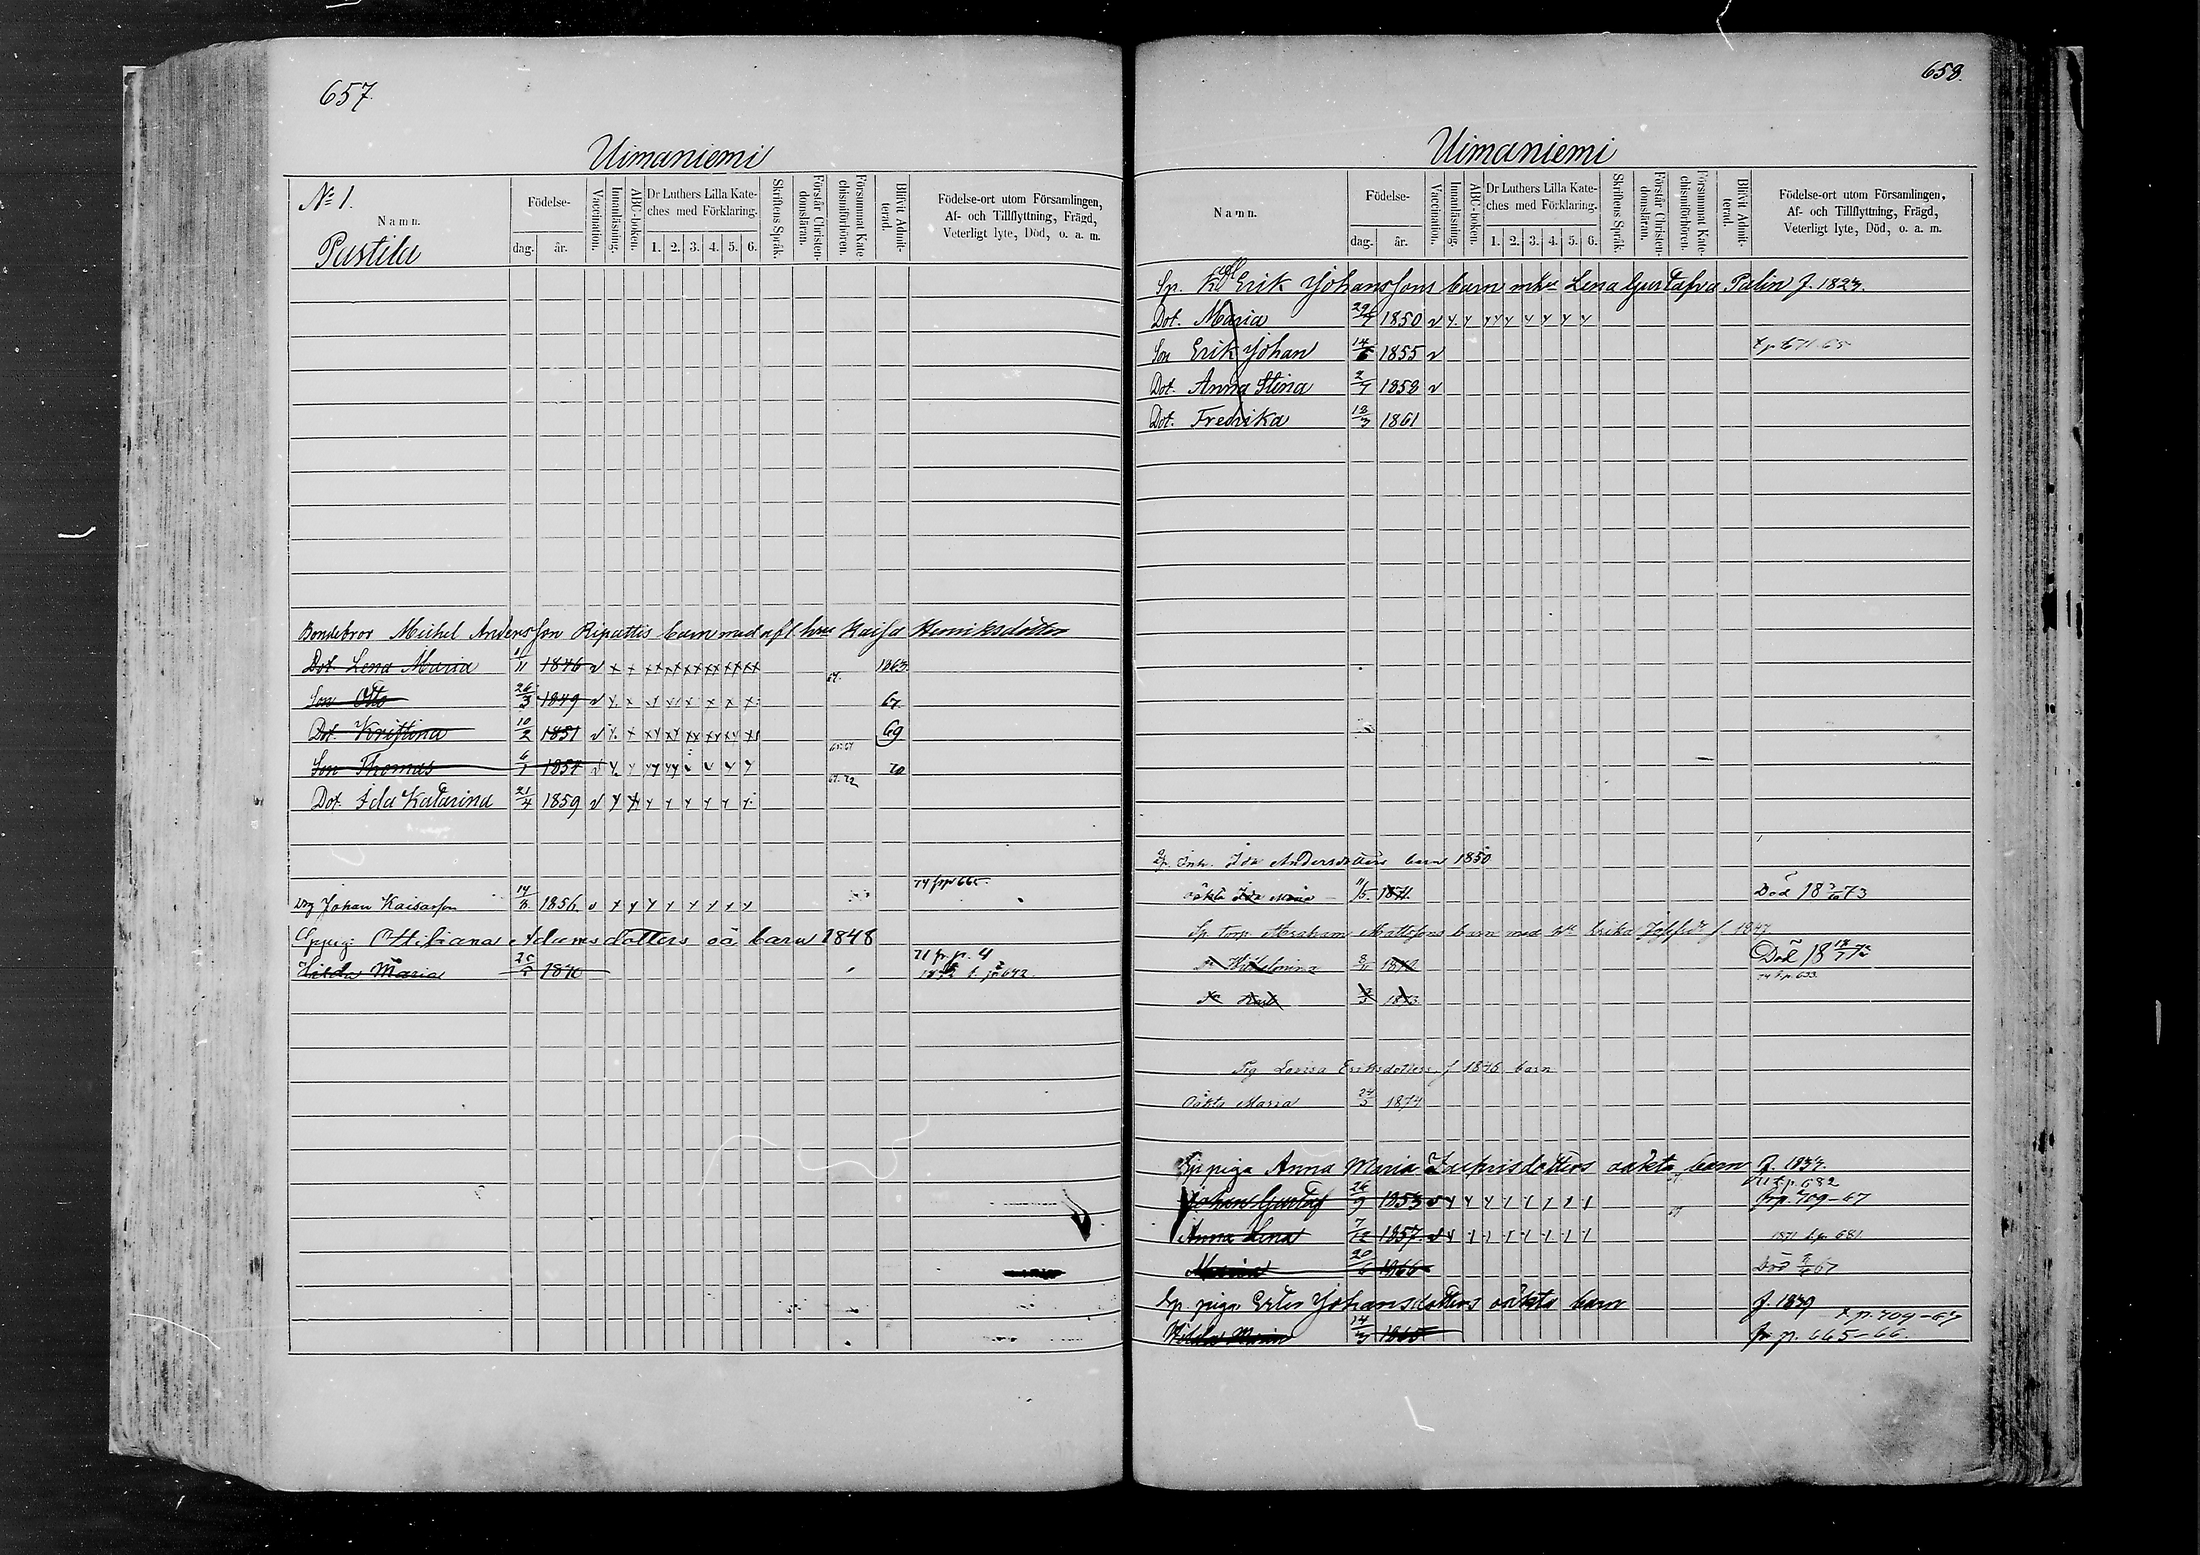 657.
Uimaniemi
No 1.
Namn.
Födelse-
dag. år.
Vaccination.
Innanläsning.
ABC-boken.
Dr Luthers Lilla Kate-
ches med Förklaring.
1. 2. 3. 4. 5. 6.
Skriftens Språk.
Förstår Christen-
domsläran.
Försummat Kate-
chismiförhören.
Blifvit Admit-
terad.
Födelse-ort utom Församlingen,
Af- och Tillflyttning, Frägd,
Veterligt lyte, Död, o. a. m.
Pastila
Bondebror Michel Andersson Ripattis barn med afl hu Kaisa Henriksdotter
Dot. Lena Maria 1/11 1846 1863.
Son Otto 26/3 1849 67
Dot. Kristina 10/2 1851 69
Son Thomas 6/1 1854 70
Dot. Ida Katarina 21/4 1859
74 fr p 665.
Johan Kaisasson 14/8 1856
Ottiliana Adamsdotters oä barn 1848
Hilda Maria 1870 71 fr. p. 4
658.
Uimaniemi
Namn.
Födelse-
dag. år.
Vaccination.
Innanläsning.
ABC-boken.
Dr Luthers Lilla Kate-
ches med Förklaring.
1. 2. 3. 4. 5. 6.
Skriftens Språk.
Förstår Christen-
domsläran.
Försummat Kate-
chismiförhören.
Blifvit Admit-
terad.
Födelse-ort utom Församlingen,
Af- och Tillflyttning, Frägd,
Veterligt lyte, Död, o. a. m.
Sp. Erik Johanssons barn m hu Lena Gustafva Palin f. 1823.
Dot. Maria 29/7 1850
Son Erik Johan 14/6 1855
Dot. Anna Stina 2/7 1858
Dot. Fredrika 12/3 1861
Sp. Inh. Ida Andersdotters barn 1850
oäkta Ida Maria 11/5 1871. Död 73
Sp. torp. Abraham Mattssons barn med Erika f. 1847
Wilhelmina 1872 Död 18
Karl 1873
Pig Lovisa Eriksdotters f 1846 barn
Oäkta Maria 24/3 1874
Sp piga Anna Maria oäkta barn f. 1834.
t.p. 682
Johan Gustaf 26/9 1853 fr p. 709-67
Anna Lena 7/12 1857. 1871 t.p. 681
Maria 20/6 1866 Död 67
Sp piga Ester Johansdotters oäkta barn f. 1839
t. p. 709-67
Hilda Maria 14/3 1865 fr p. 665-66.